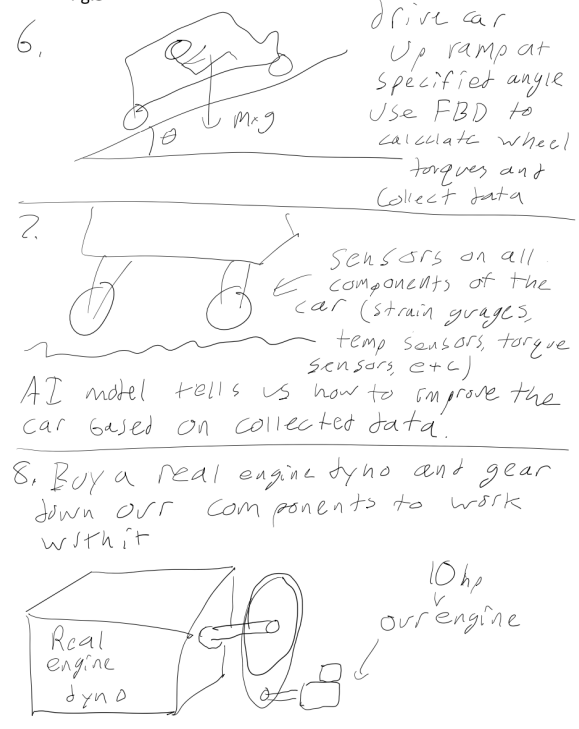 6.
drive car
up ramp at
specified angle
use FBD to
calculate wheel
torques and
collect data
θ
m*g
7.
sensors on all
components of the
car (strain guages,
temp sensors, torque
sensors, etc)
AI model tells us how to improve the
car based on collected data.
8. Buy a real engine dyno and gear
down our components to work
with it
10hp
our engine
Real
engine
dyno